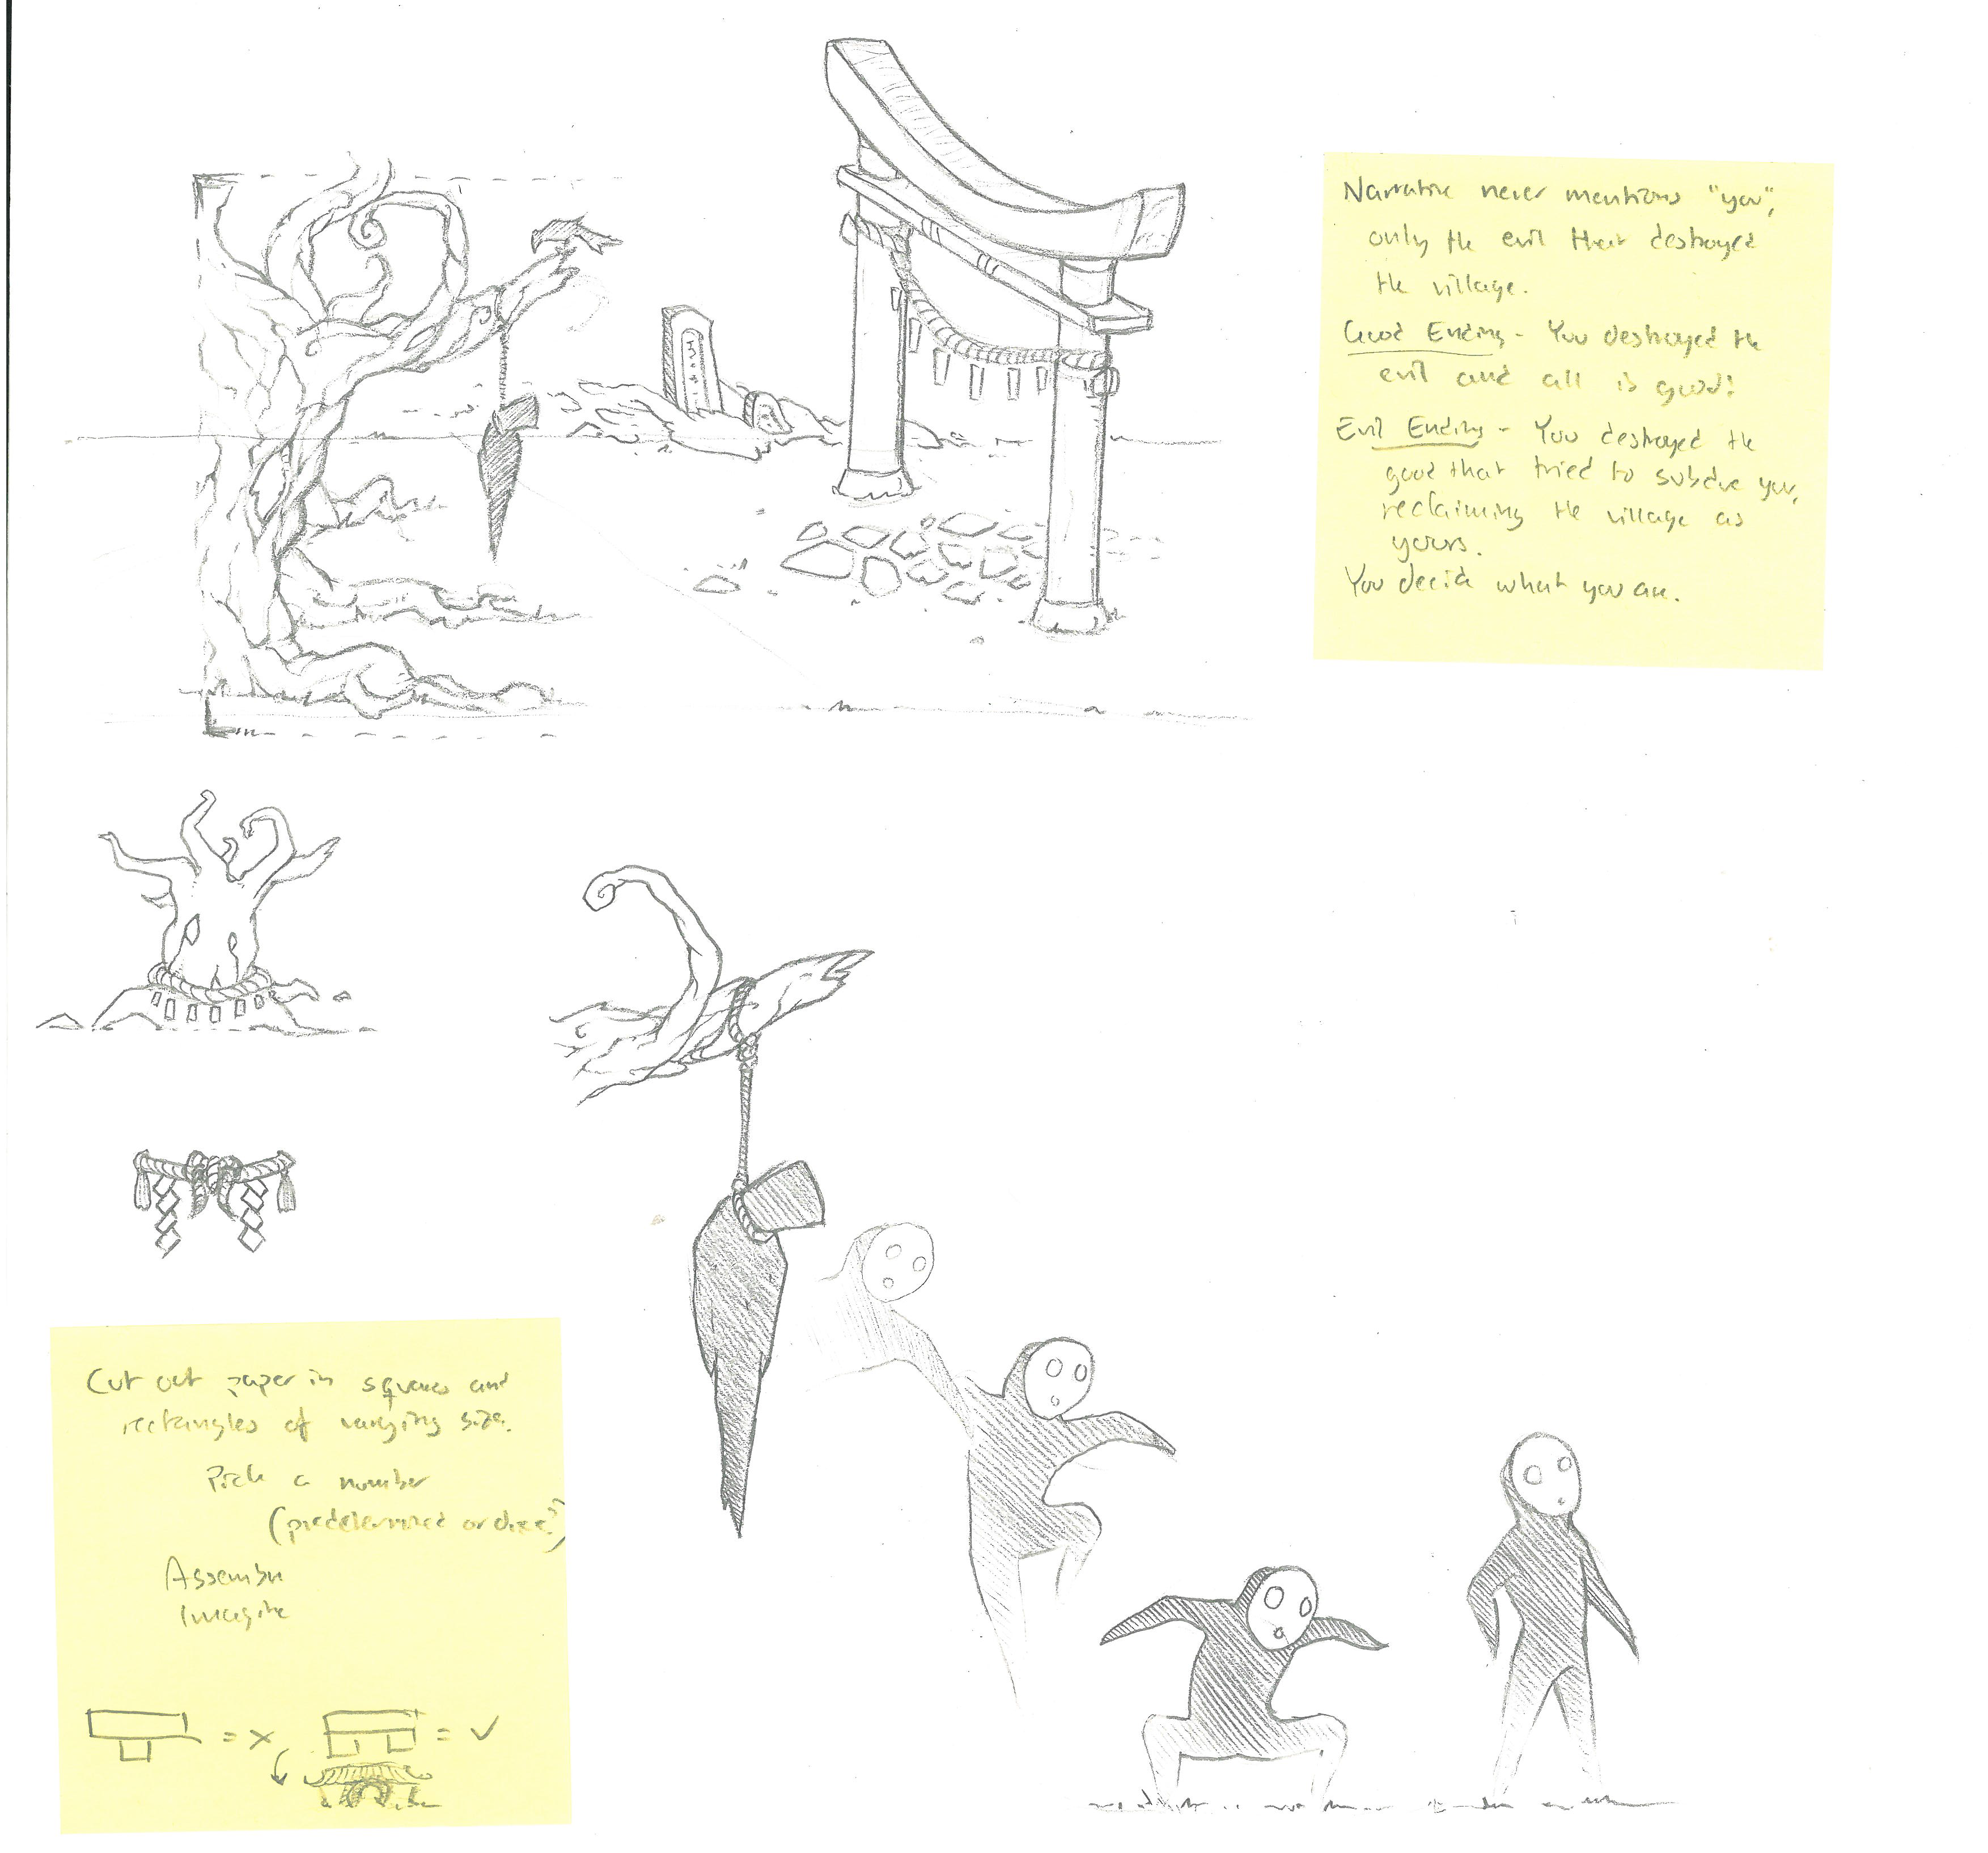 Narrative never mentions "you",
only the evil that destroyed
the village.
Good Ending - You destroyed the
evil and all is good!
Evil Ending - You destroyed the
good that tried to subdue you,
reclaiming the village as
yours.
You decide what you are.
Cut out paper in squares and
rectangles of varying size.
Pick a number
(predetermined or dice?)
Assemble
Imagine
= x
= ✓